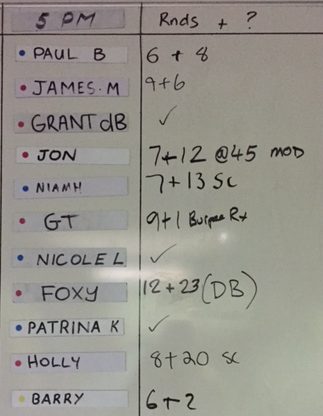 5 PM Rnds + ?
PAUL B 6 + 8
JAMES.M 9+6
GRANT dB ✓
JON 7+12 @45 MOD
NIAMH 7+13 Sc
GT 9+1 Burpee Rx
NICOLE L ✓
FOXY 12+23 (DB)
PATRINA K ✓
HOLLY 8+20 SC
BARRY 6+2